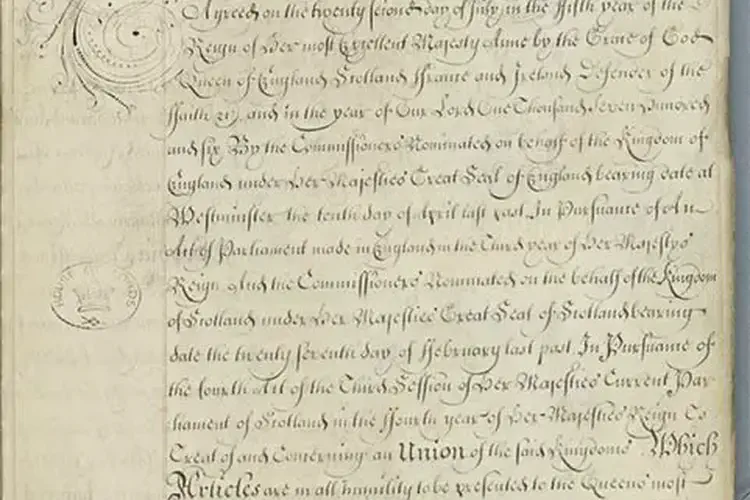 Agreed on the twenty second day of July in the ffifth year of the
Reign of Her most Excellent Majesty Anne by the Grace of God
Queen of England Scotland ffrance and Ireland Defender of the
ffaith &c and in the year of Our Lord One Thousand Seven Hundred
and six By the Commissioners Nominated on behalf of the Kingdom of
England under Her Majesties Great Seal of England bearing date at
Westminster the tenth day of April last past In Pursuance of An
Act of Parliament made in England in the Third year of Her Majestys
Reign And the Commissioners Nominated on the behalf of the Kingdom
of Scotland under Her Majesties Great Seal of Scotland bearing
date the twenty seventh day of ffebruary last past In Pursuance of
the fourth Act of the Third Session of Her Majesties Current Par
liament of Scotland in the ffourth year of Her Majesties Reign To
Treat of and Concerning an Union of the said Kingdoms Which
Articles are in all humility to be presented to the Queens most